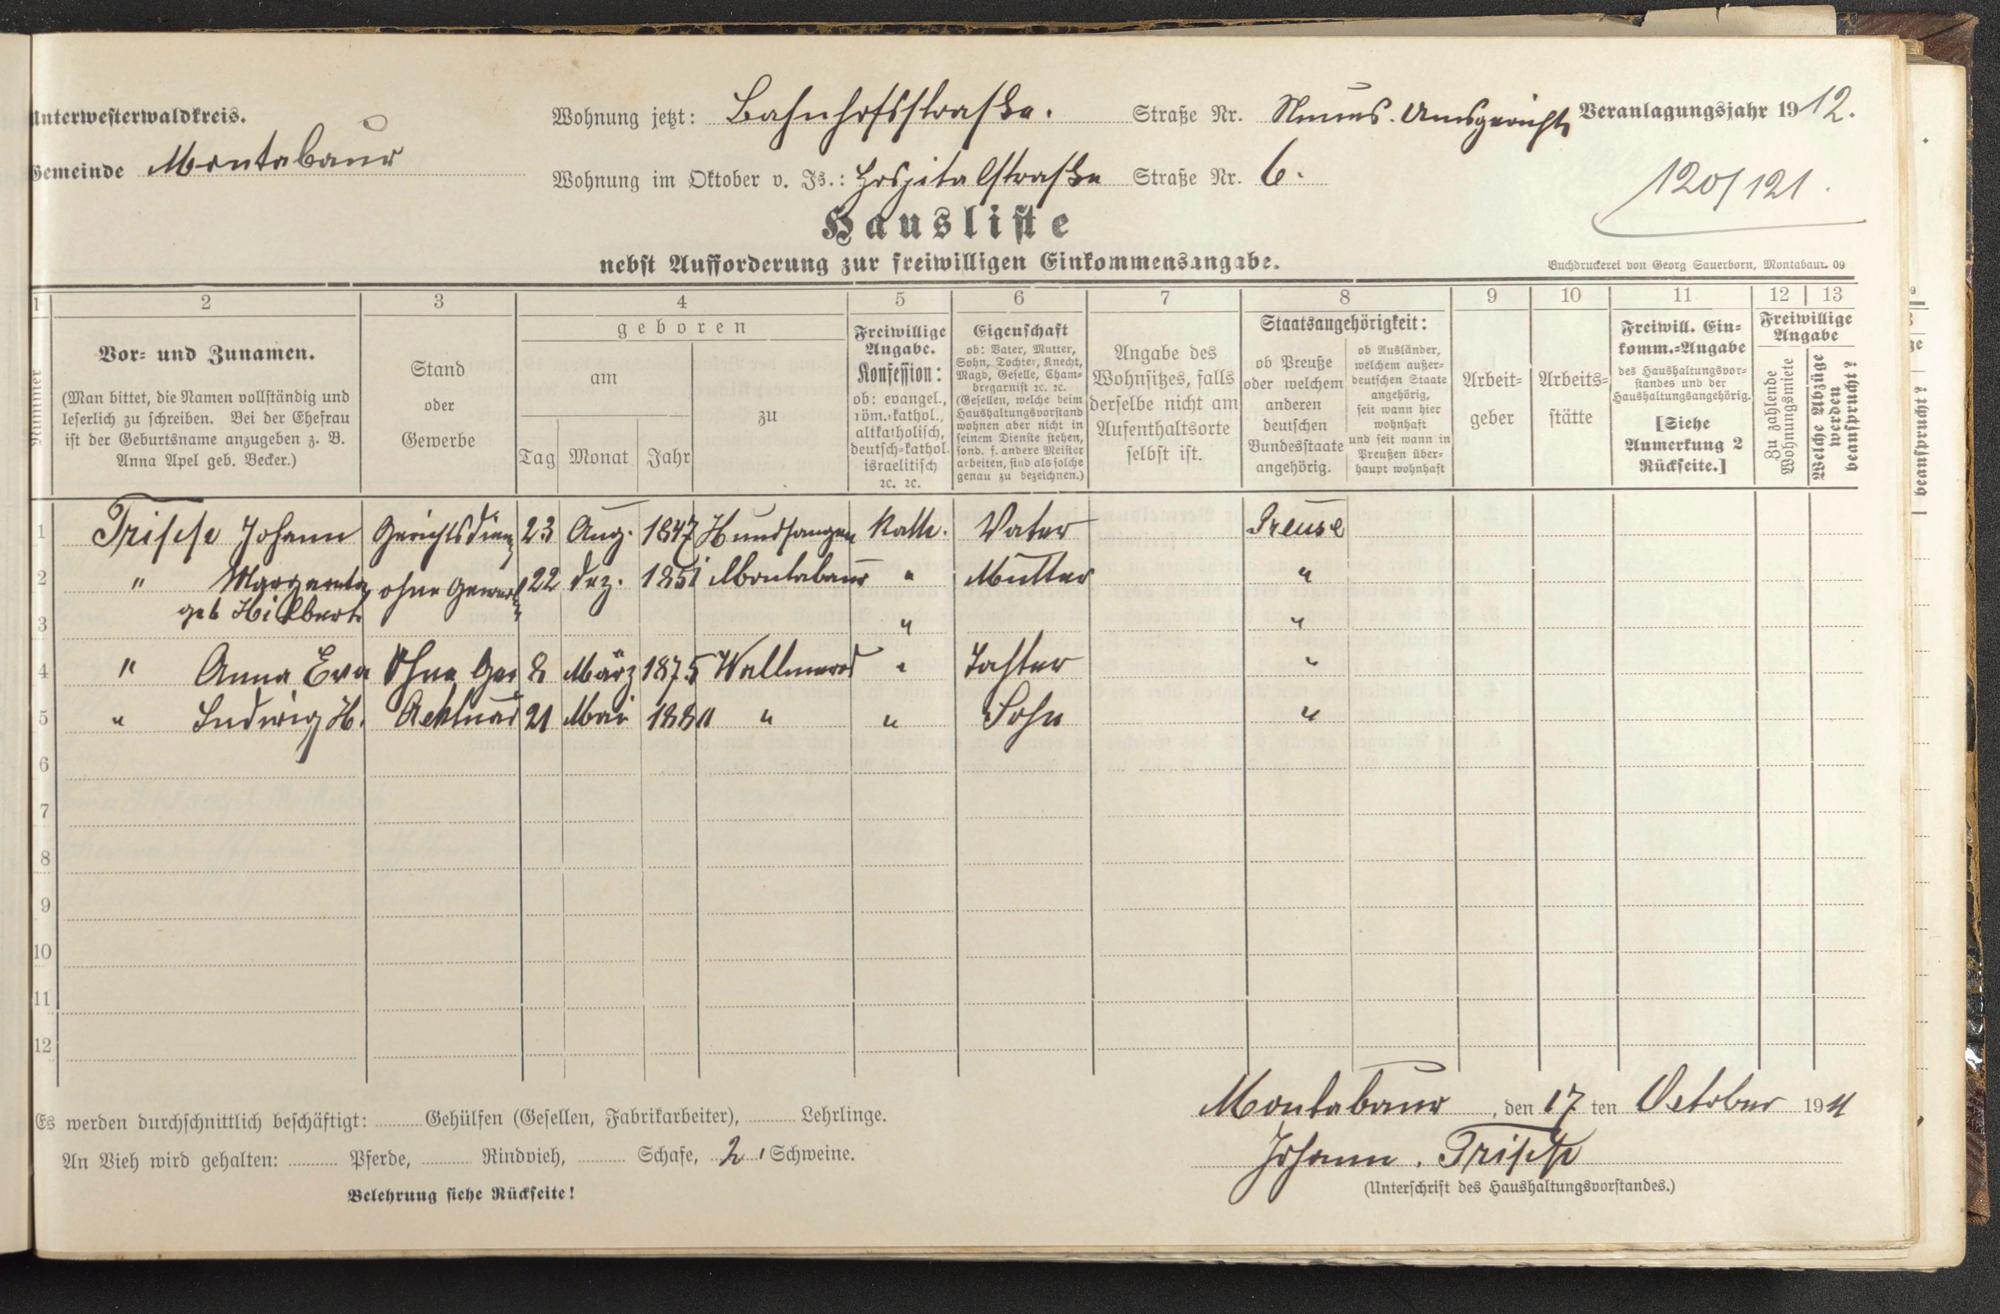 Unterwesterwaldkreis.
Gemeinde Montabaur
Wohnung jetzt: Bahnhofsstraße. Straße Nr. Neues. Amsgericht Veranlagungsjahr 1912.
Wohnung im Oktober v. Js.: Hospitalstraße Straße Nr. 6.
120/121.
Hausliste
nebst Aufforderung zur freiwilligen Einkommensangabe.
Buchdruckerei von Georg Sauerborn, Montabaur. 09
1 2 3 4 5 6 7 8 9 10 11 12 13
Nummer
Vor- und Zunamen.
(Man bittet, die Namen vollständig und
leserlich zu schreiben. Bei der Ehefrau
ist der Geburtsname anzugeben z. B.
Anna Apel geb. Becker.)
Stand
oder
Gewerbe
geboren
am
Tag Monat Jahr
zu
Freiwillige
Angabe.
Konfession:
ob: evangel.,
röm.-kathol.,
altkatholisch,
deutsch-kathol.
israelitisch
ꝛc. ꝛc.
Eigenschaft
ob: Vater, Mutter,
Sohn, Tochter, Knecht,
Magd, Geselle, Cham-
bregarnist ꝛc. ꝛc.
(Gesellen, welche beim
Haushaltungsvorstand
wohnen aber nicht in
seinem Dienste stehen,
sond. f. andere Meister
arbeiten, sind als solche
genau zu bezeichnen.)
Angabe des
Wohnsitzes, falls
derselbe nicht am
Aufenthaltsorte
selbst ist.
Staatsangehörigkeit:
ob Preuße
oder welchem
anderen
deutschen
Bundesstaate
angehörig.
ob Ausländer,
welchem außer-
deutschen Staate
angehörig,
seit wann hier
wohnhaft
und seit wann in
Preußen über-
haupt wohnhaft
Arbeit-
geber
Arbeits-
stätte
Freiwill. Ein-
komm.-Angabe
des Haushaltungsvor-
standes und der
Haushaltungsangehörig.
[Siehe
Anmerkung 2
Rückseite.]
Freiwillige
Angabe
Zu zahlende
Wohnungsmiete
Welche Abzüge
werden
beansprucht?
beansprucht?
1 Johann 23 Aug. 1847 Hundsangen Kath. Vater Preuse
2 " Margareta 22 Dez. 1851 Montabaur " Mutter "
3 " "
4 " Anna Eva Ohne Gew 8 März 1875 " Tochter "
5 " Ludwig H. Aktuar 21 Mai " " Sohn "
6
7
8
9
10
11
12
Es werden durchschnittlich beschäftigt: Gehülfen (Gesellen, Fabrikarbeiter), Lehrlinge.
An Vieh wird gehalten: Pferde, Rindvieh, Schafe, 2 Schweine.
Belehrung siehe Rückseite!
Montabaur, den 17 ten October 1911
Johann.
(Unterschrift des Haushaltungsvorstandes.)